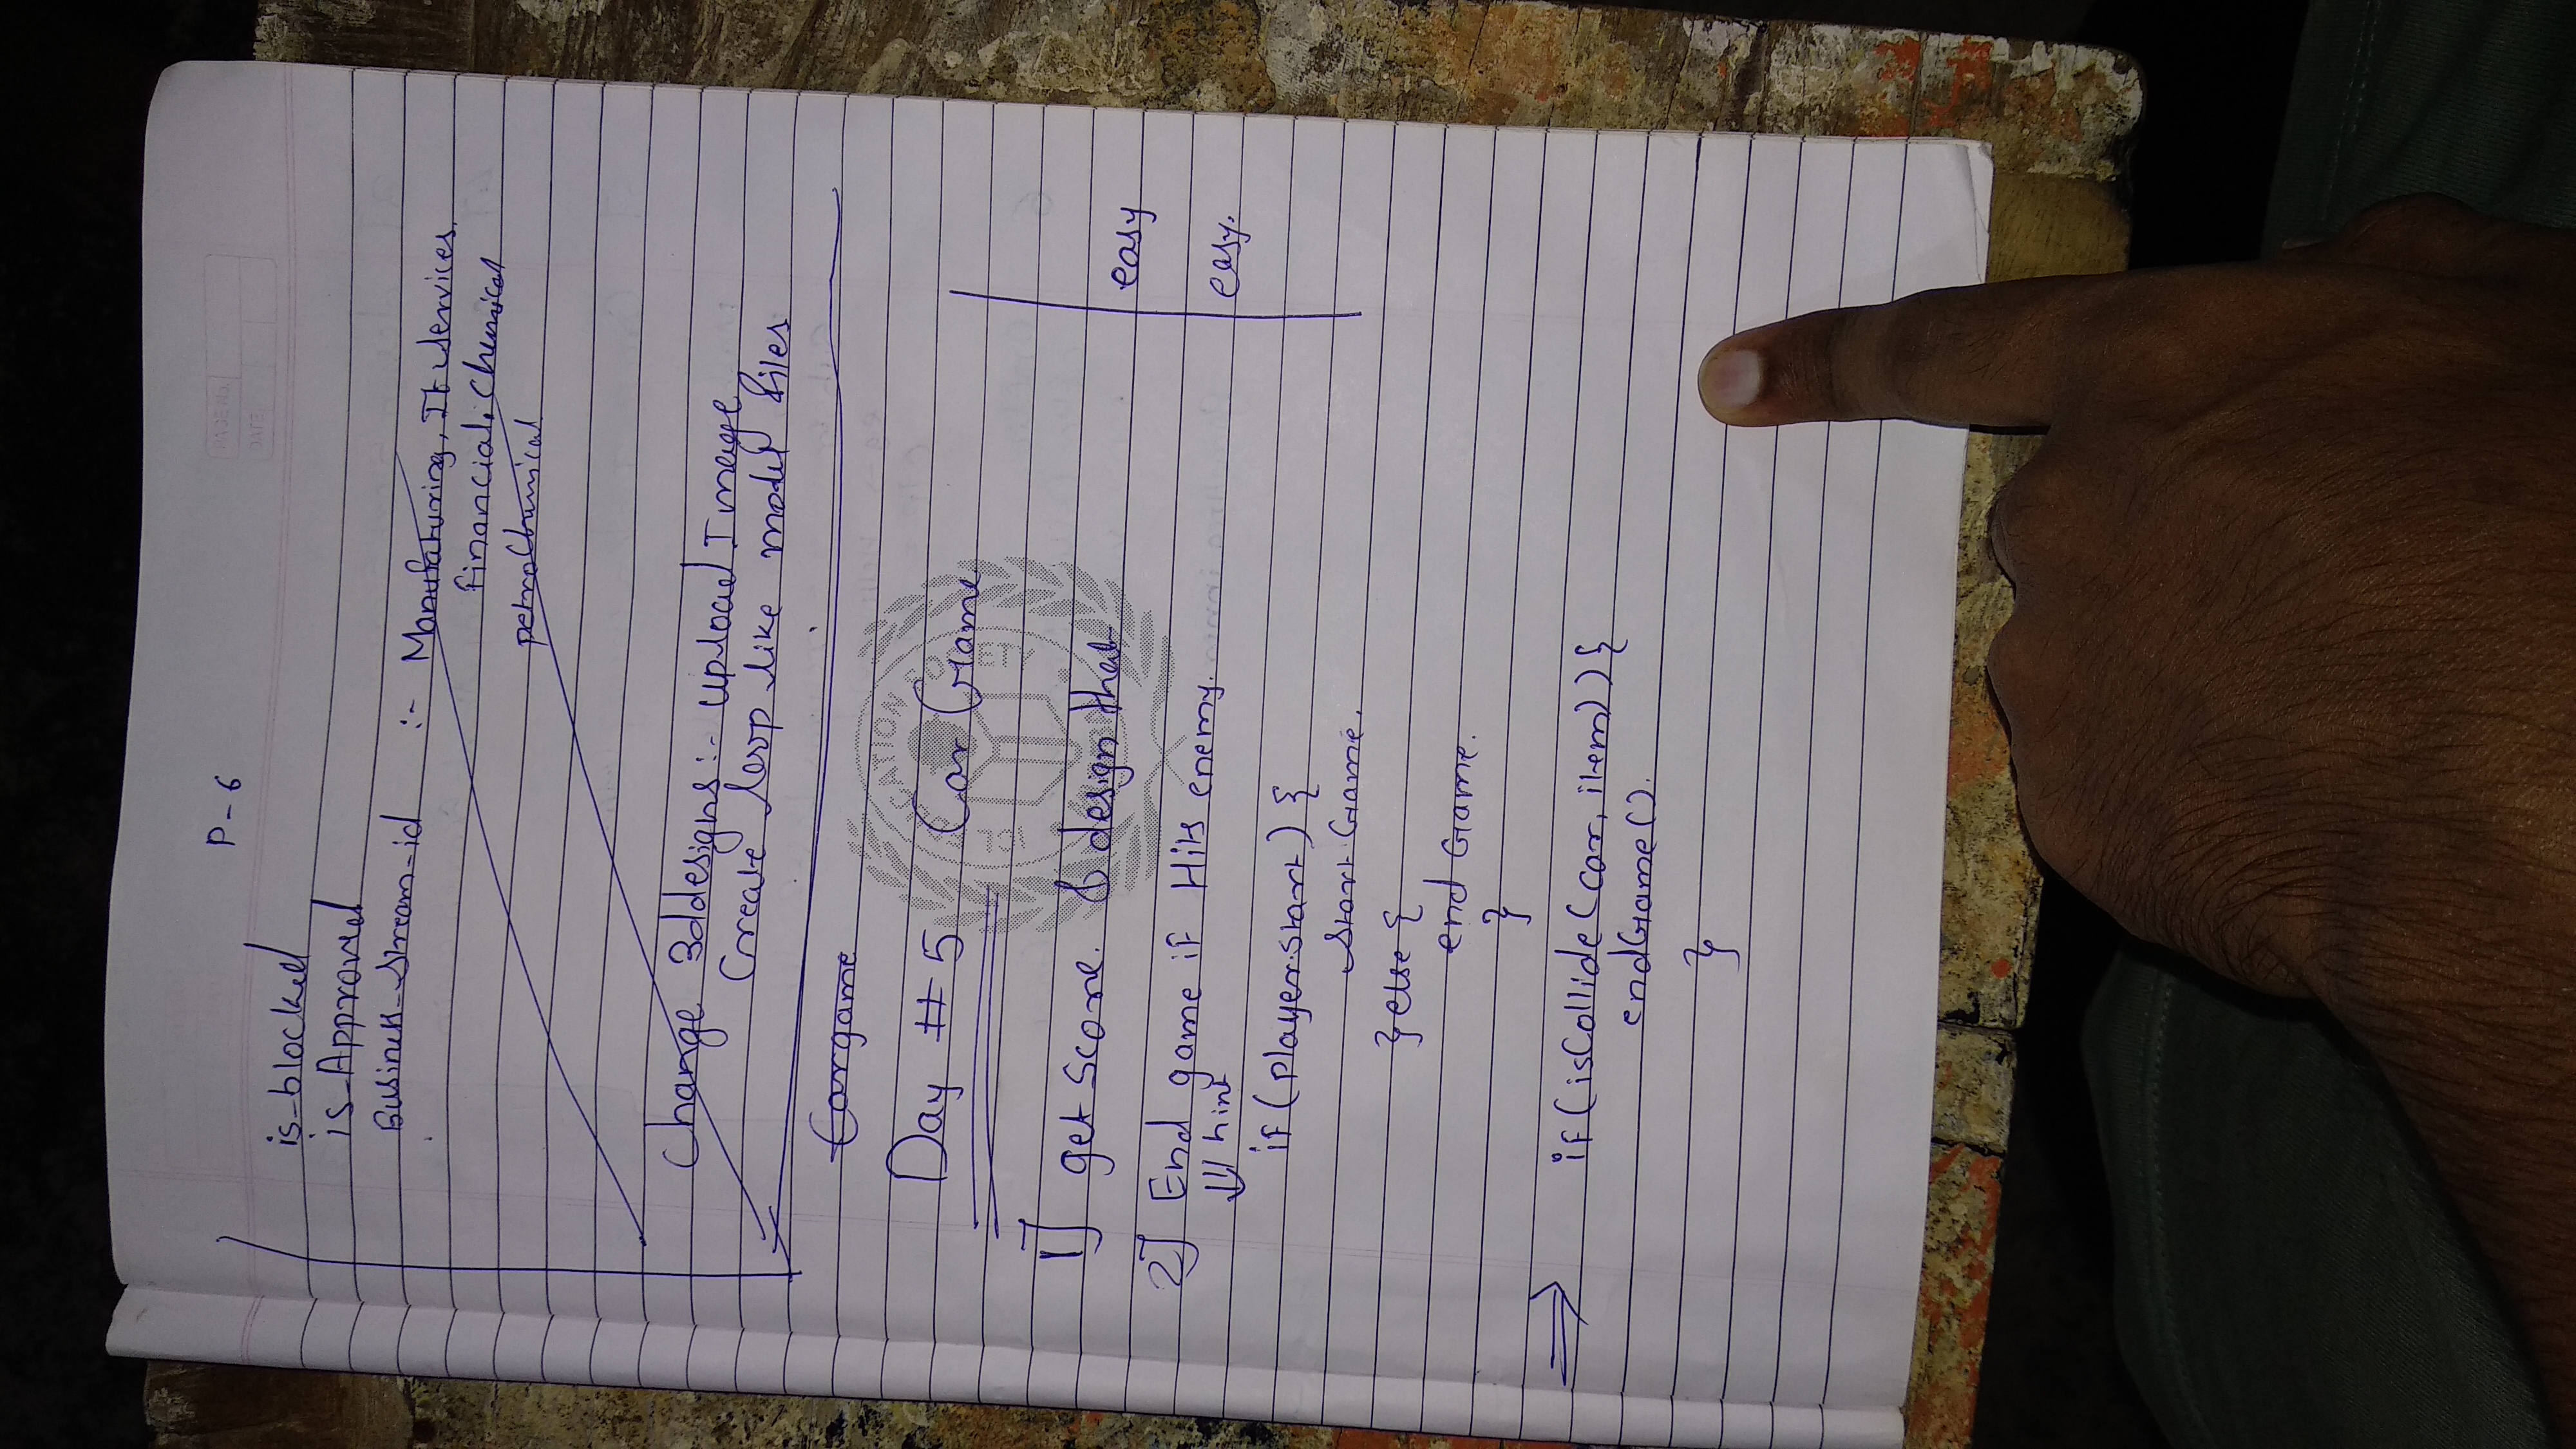 P-6
PAGE NO.
DATE
is-blocked
is-Approved
Business-stream-id :- Manufaturing, It services,
financial, Chemical
petroChemical
Change 3ddesigns :- upload Image
Create loop like model files
Cargame
Day # 5 Car Game
1] get Score. & design that easy
2] End game if Hits enemy. easy.
hint
if (player.start) {
start Game.
} else {
end Game.
}
⇒ if (isCollide (car, item)) {
endGame().
}